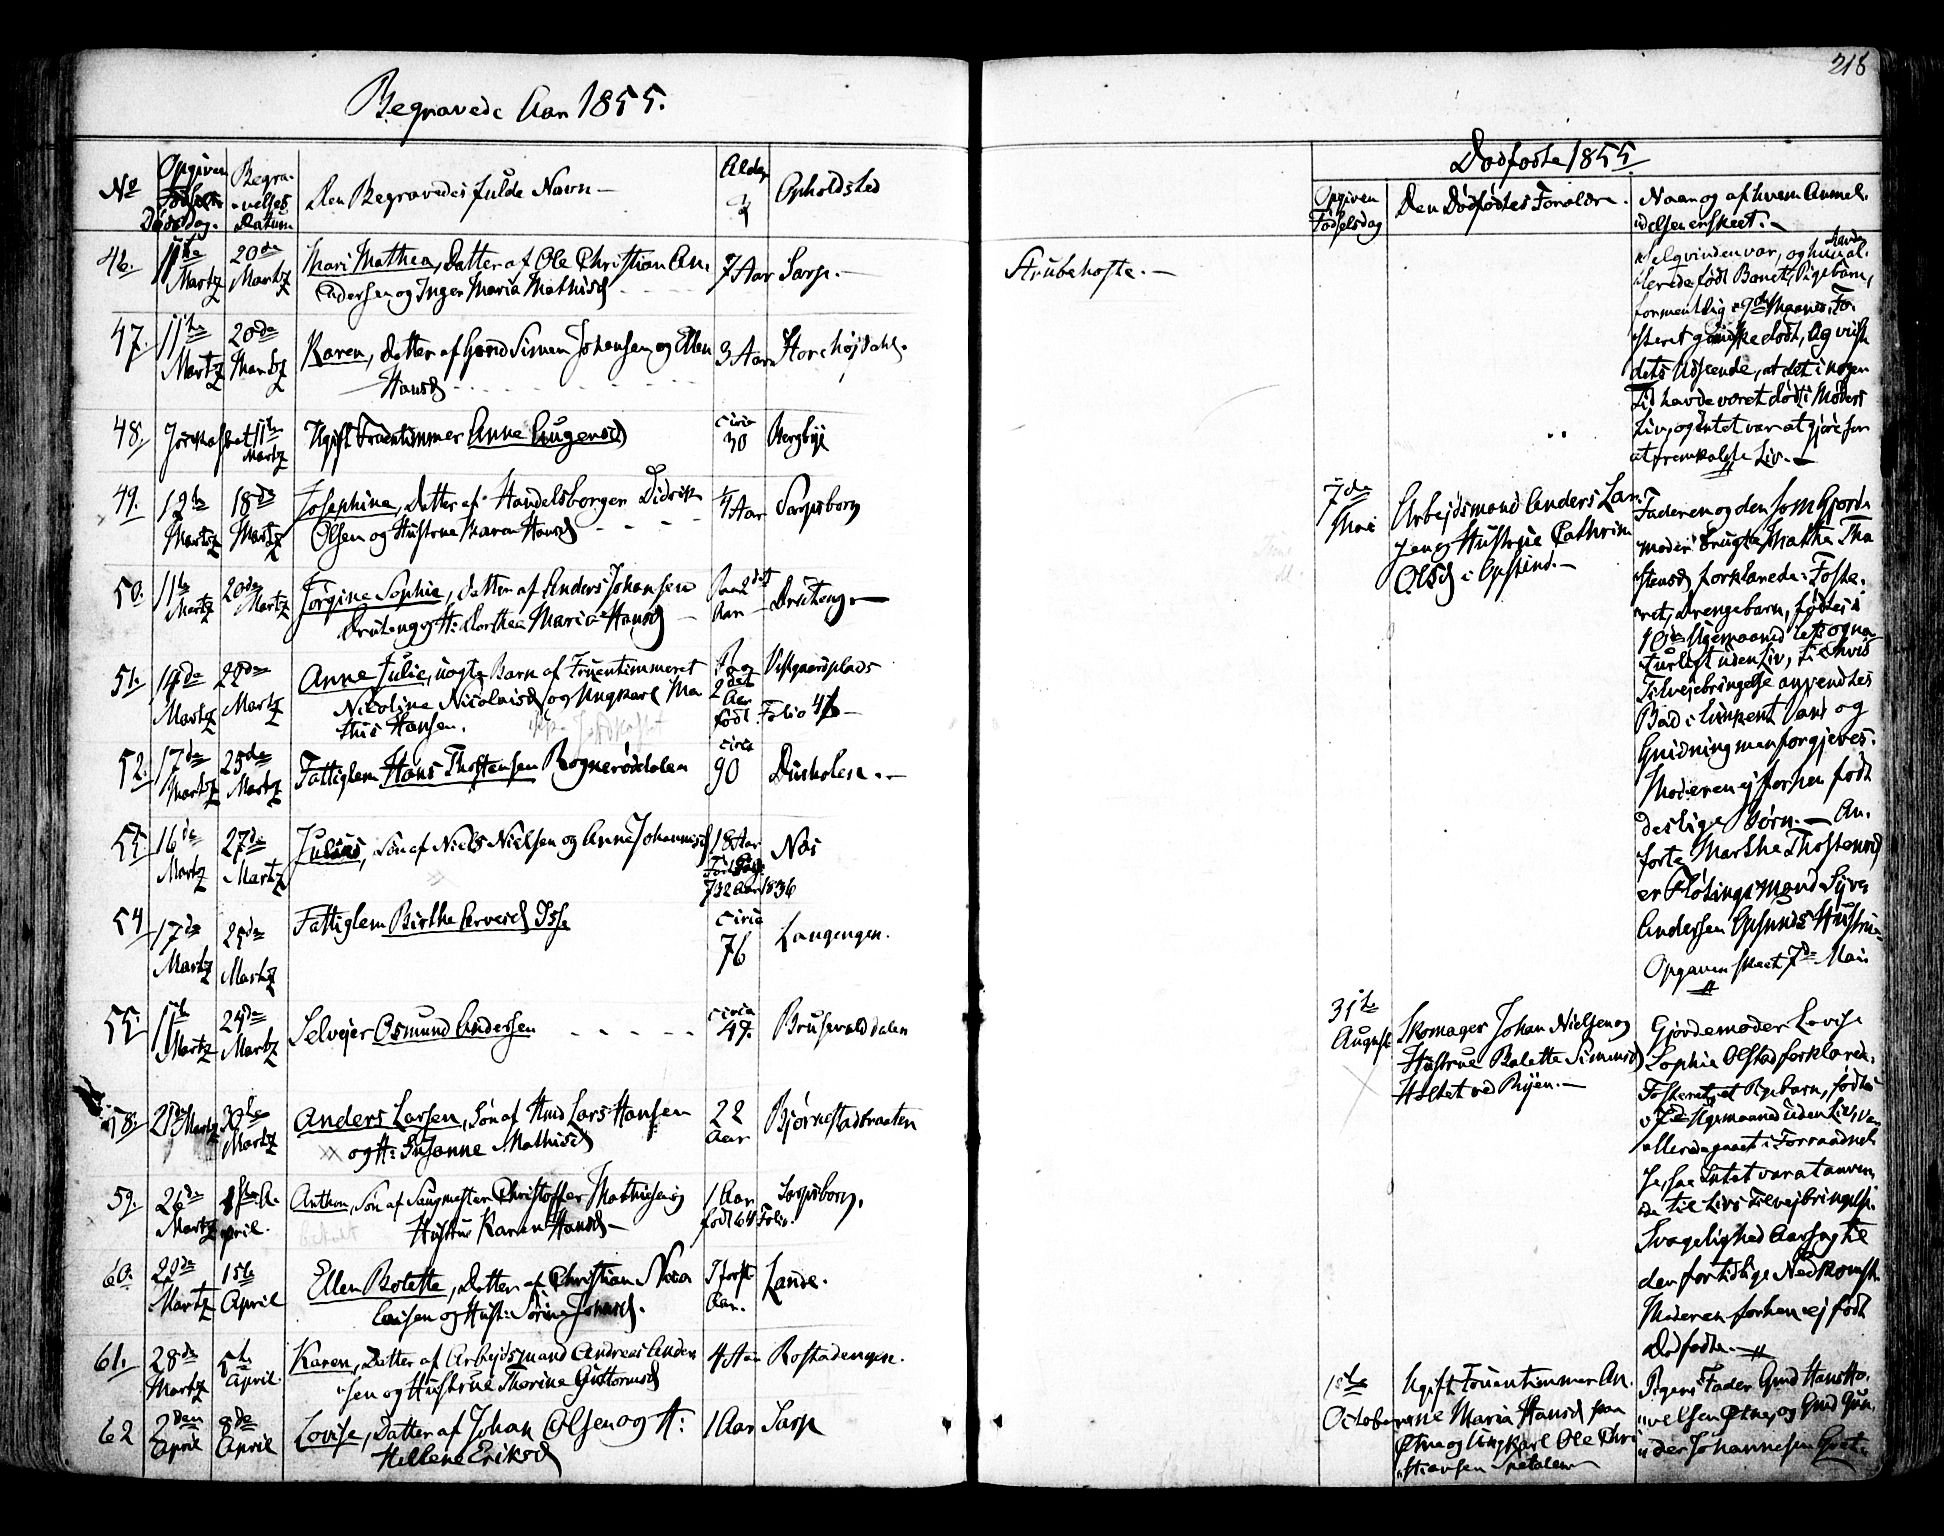 Begravede Aar 1855.
No
Opgiven
Dødsdag.
Begra-
velses
Datum
Den Begravedes fulde Navn
Alder
Opholdsted
46.
11te
Martz
20de
Martz
Mari Mathea, Datter af Ole Christian An-
dersen og Inger Maria Mathisd
7 Aar
Sarp.
Strubehoste.
47.
11te
Martz
20de
Martz
Karen, Datter af Simen Johansen og Ellen
Hansd
3 Aar
48.
11te
Martz
Ugift Fruentimmer Anne
circa
30
Bergbye
49.
12te
Martz
18de
Martz
Josephine, Datter af Handelsborger Didrik
Olsen og Hustrue Maren Hansd
4 Aar
Sarpsborg
50.
11te
Martz
20de
Martz
Jørgine Sophie, Datter af Anders Johansen
og H: Dorthea Maria Hansd
Paa 2det
Aar
51.
19de
Martz
22de
Martz
Anne Julie, uægte Barn af Fruentimmeret
Nicoline Nicolaisd og Ungkarl Ma
this Hansen.
Paa
2det
Aar
født Folio
52.
17de
Martz
25de
Martz
Fattiglem Hans Thostensen Rognerøddalen
circa
90
16de
Martz
27de
Martz
Julius, Søn af Niels Nielsen og Anne Johannisd
18 Aar
1836
54
17de
Martz
25de
Martz
Fattiglem Birthe
circa
76
Langengen.
55.
11te
Martz
24de
Martz
Selvejer Osmund Andersen
circa
49.
Brusevolddalen
58.
25de Martz
30te
Martz
Anders Larsen, Søn af Hmd Lars Hansen
og H: Susanne Mathisd
22
Aar
Bjørnestadbraaten
59.
26de
Martz
1ste A-
pril.
Anthon, Søn af Christoffer Mathiesen og
Hustrue Karen Hansd
1 Aar
født 64 Folio.
Sarpsborg.
60.
20de
Martz
1ste
April
Ellen Bolette, Datter af Christian
og Hust:
I første
Aar.
Lande.
61.
28de
Martz
5te
April.
Karen, Datter af Arbejdsmand Andreas Ander
sen og Hustrue Therine Guttormsd
4 Aar
Rostadengen.
62
2den
April
8de
April
Lovise, Datter af Johan Olsen og H:
Hellene Eriksd
1 Aar
Sarp
Dødfødte 1855
Opgiven
Fødselsdag
Den Dødfødtes Forældre.
Naar og af hvem Anmel-
delsen er skeet.
Selqvinden var, og hun
havde
lerede født Barnet, Pigebarn,
formentlig 9de Maaned. Fo-
steret ganske dødt, og
dets Udseende, at det i nogen
Tid havde været dødt i Moders
Liv, og intet var at gjøre for
at fremkalde Liv.
7de
Mai
Arbejdsmand Anders Lar
sen og Hustrue Cathrine
Olsd i Opstind.
Faderen og den som Gjorde
moder brugte Marthe Tho
stensd forklarede: Foste-
ret, Drengebarn, fødtes i
10de Ugemaaned
uden Liv, til hvis
Tilvejebringelse anvendtes
Bad i lunkent Vand og
Gnidning men forgjeves.
Moderen ej forhen født
deslige Børn. An-
førte Marthe Thostensd
er Fløtingsmand Syver
Andersen Opsunds Hustrue
Opgaven skeet 7de Mai
31te
August
Skomager Johan Nielsen og
Hustrue Bolette Simensd
Holtet ved Ryen.
Gjordemoder Lovise
Sophie Olstad forklarede:
Fosteret, et Pigebarn, fødtes
i 7de Ugemaaned uden Liv, var
allerede gaaet i Forraadnel-
se, saa Intet var at anven
de til Livs Tilvejebringelse.
Svagelighed Aarsag til
den fortidlige Nedkomst.
Moderen forhen ej født
Dødfødte.
October
Ugift Fruentimmer An-
ne Maria Hansd paa
Ungkarl Ole Chri
stiansen
Pigens Fader Gmd Hans
og Gmd Gun-
der Johannesen